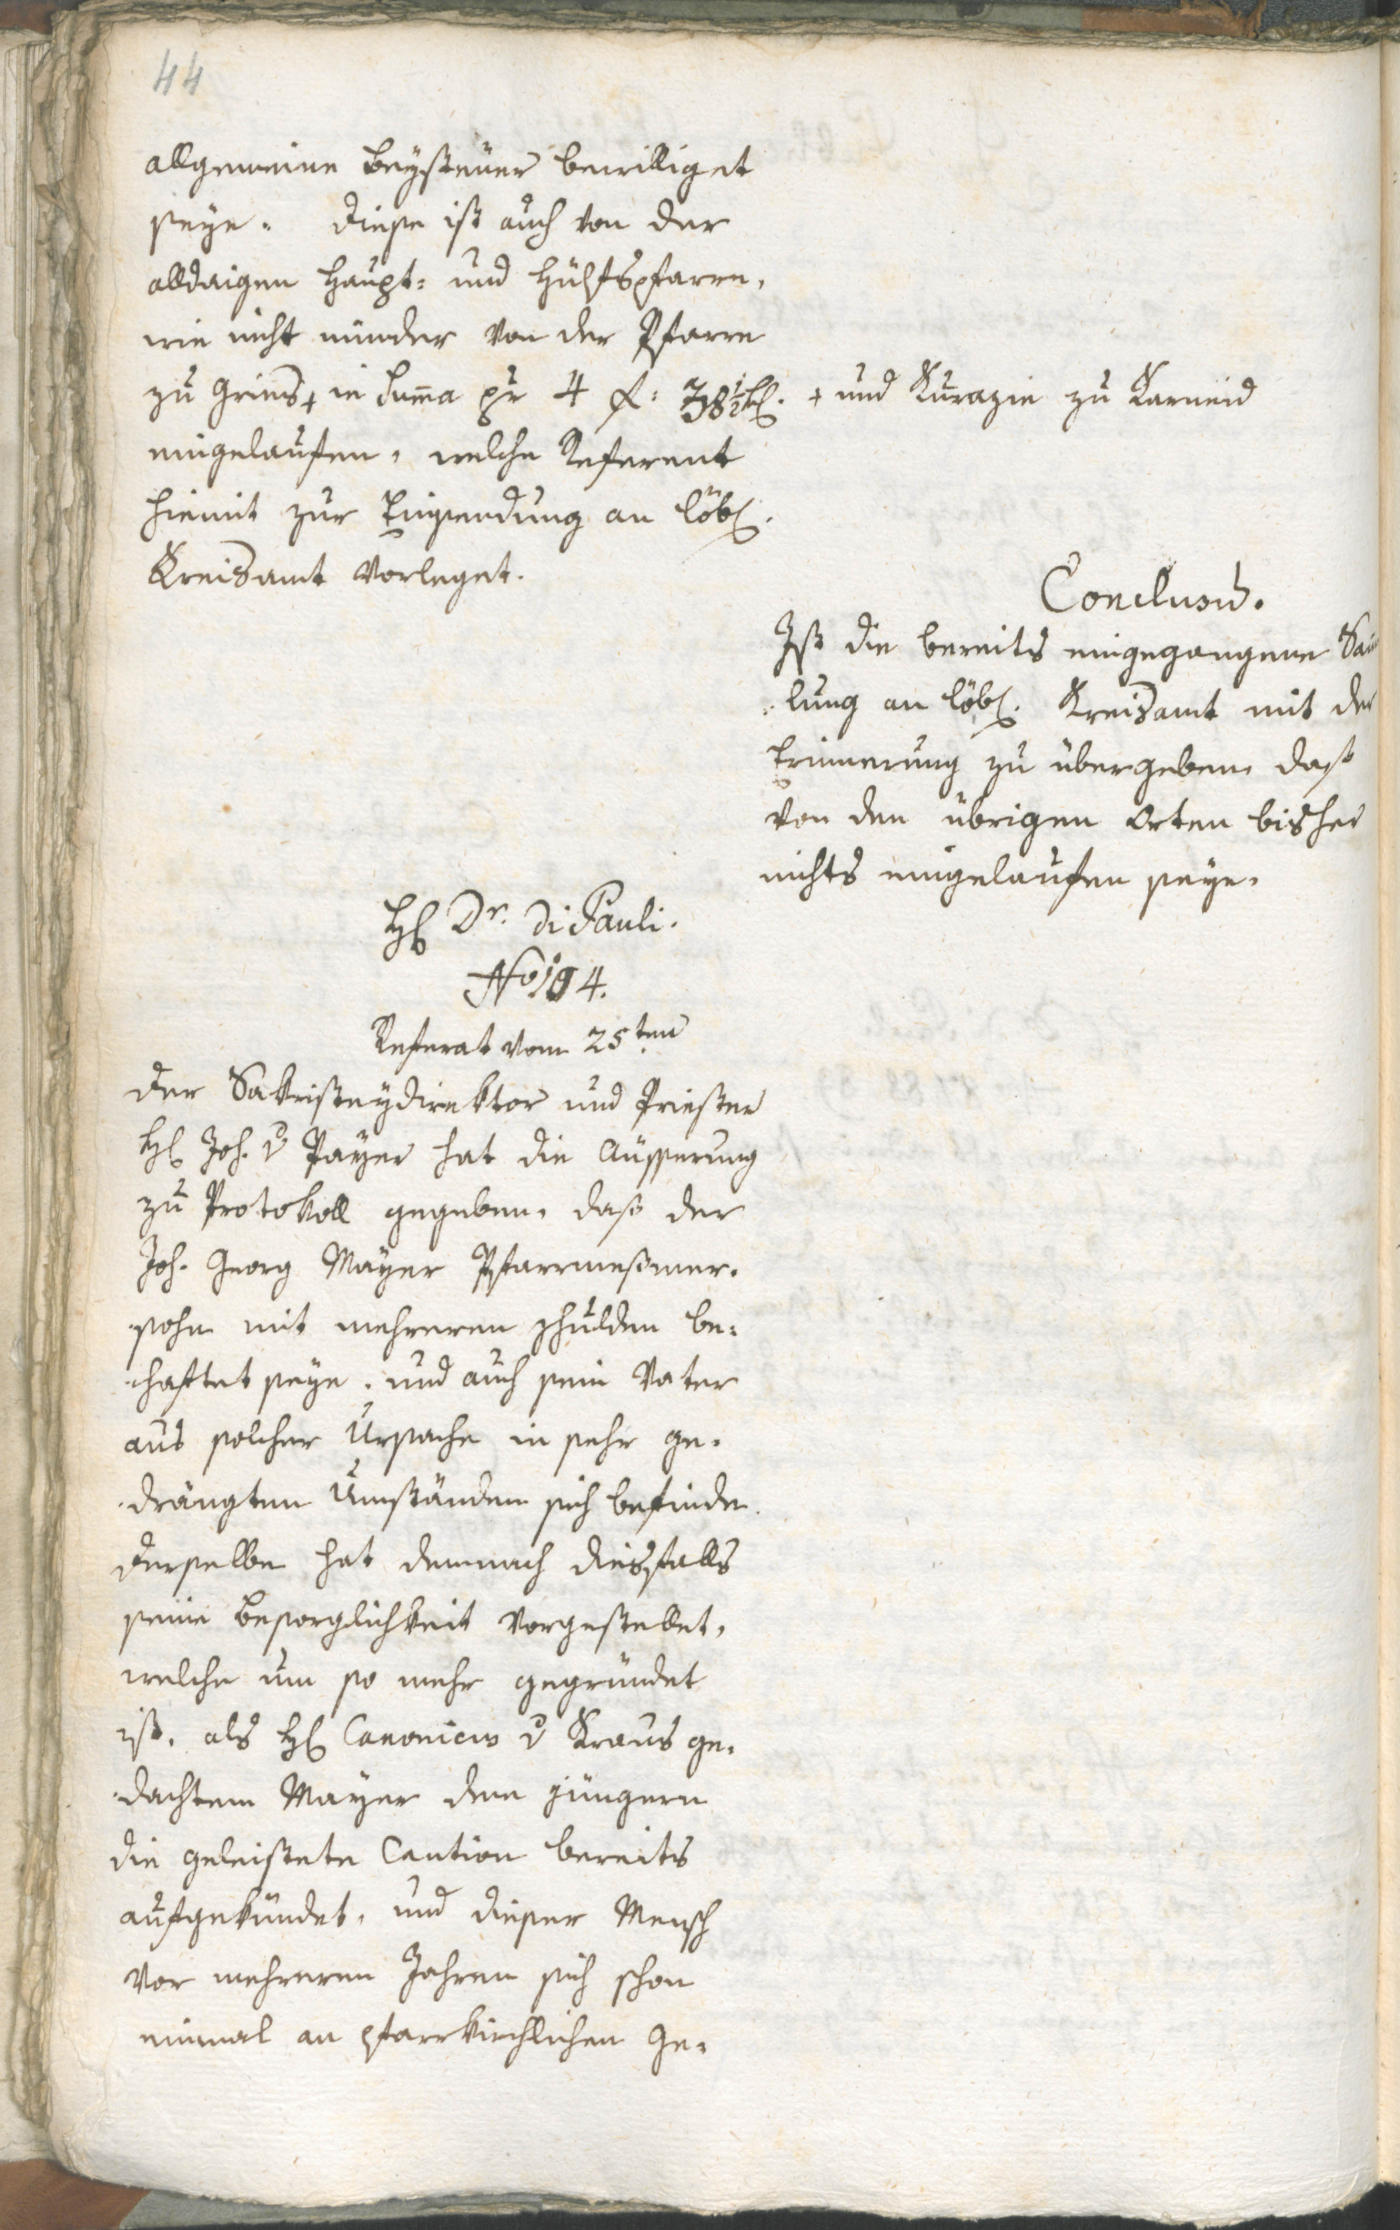 44
allgemeine Beysteuer bewilliget
seye. Diese ist auch von der
alldaigen Haupt- und Hülfspfarre,
wie nicht minder von der Pfarre
zu Gries + in Suma pr 4 f: 38½ kr.
+ und Kurazie zu Karneid
eingelaufen, welche Referent
hiemit zur Einsendung an löbl.
Kreisamt vorleget.
Conclusum.
Ist die bereits eingegangene Sam
=lung an löbl. Kreisamt mit der
Erinnerung zu übergeben, daß
von den übrigen Orten bisher
nichts eingelaufen seye.
H. Dr. Di Pauli.
No 194.
Referat vom 25ten
Der Sakristeydirektor und Priester
H. Joh. v Payer hat die Äusserung
zu Protokoll gegeben, daß der
Joh. Georg Mayer Pfarrmeßmer-
sohn mit mehreren schulden be-
haftet seye, und auch sein Vater
aus solcher Ursache in sehr ge-
drängten Umständen sich befinde.
Derselbe hat demnach diesfalls
seine Besorglichkeit vorgestellet,
welche um so mehr gegründet
ist, als H. Canonicus v Kraus ge-
dachtem Mayer dem jüngern
die geleistete Caution bereits
aufgekündet, und dieser Mensch
vor mehreren Jahren sich schon
einmal an pfarrkirchlichen Ge-